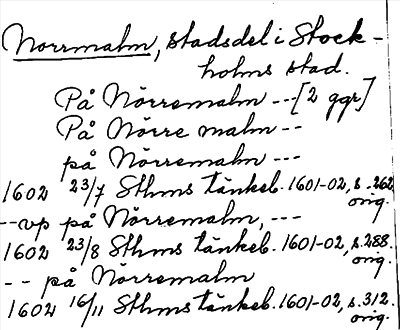 Norrmalm, stadsdel i Stock-
holms stad.
På Nörremalm --- [2 ggr]
På Nörre malm --
på Nörremalm ---
1602 23/7 Sthms tänkeb. 1601-02, s. 262
orig.
--vp på Nörremalm, ---
1602 23/8 Sthms tänkeb. 1601-02, s. 288.
orig.
-- på Nörremalm
1602 16/11 Sthms tänkeb. 1601-02, s. 312.
orig.